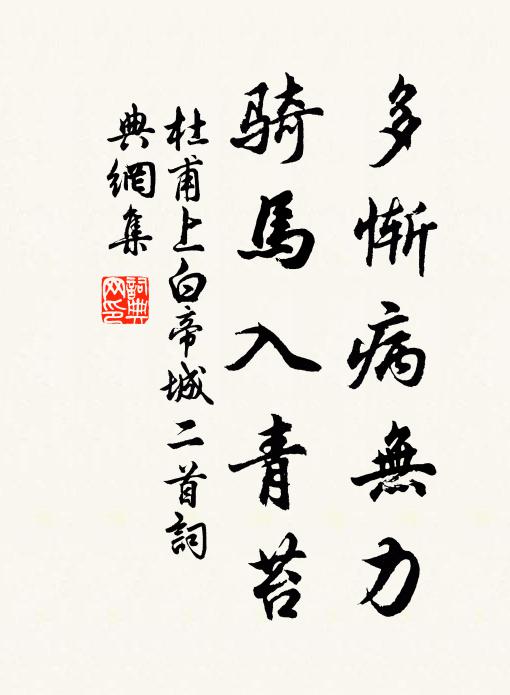 多慚病無力
騎馬入青苔
杜甫上白帝城二首詞
典網集
詞典
网印